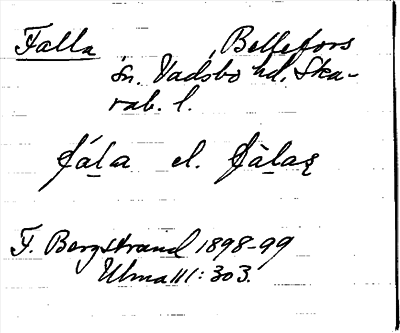 Falla Bellefors
sn. Vadsbo hd. Ska-
rab. l.
fála el. fàlaʀ
F. Bergstrand 1898-99
Ulma III: 303.